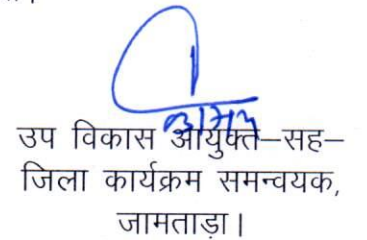 उप विकास आयुक्त–सह–
जिला कार्यक्रम समन्वयक,
जामताड़ा।